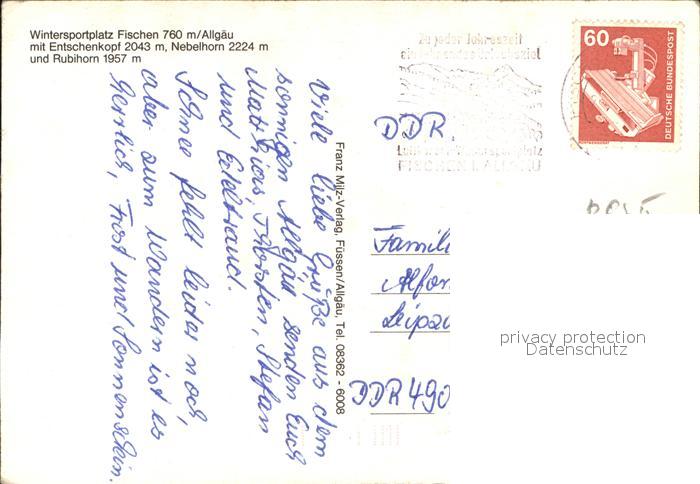 Wintersportplatz Fischen 760 m/Allgäu
mit Entschenkopf 2043 m, Nebelhorn 2224 m
und Rubihorn 1957 m
Viele liebe Grüße aus dem
sonnigen Allgäu senden Euch
Matthias, Thorsten, Stefan
und Edeltraud.
Schnee fehlt leider noch,
aber zum Wandern ist es
herrlich, Frost und Sonnenschein.
Franz Milz-Verlag, Füssen/Allgäu, Tel. 08362 - 6008
Zu jeder Jahreszeit
ein lohnendes Urlaubsziel
Luftkurort-Wintersportplatz
FISCHEN I. ALLGÄU
60
DEUTSCHE BUNDESPOST
DDR
Famil
Alfon
Leipz
DDR 490
privacy protection
Datenschutz